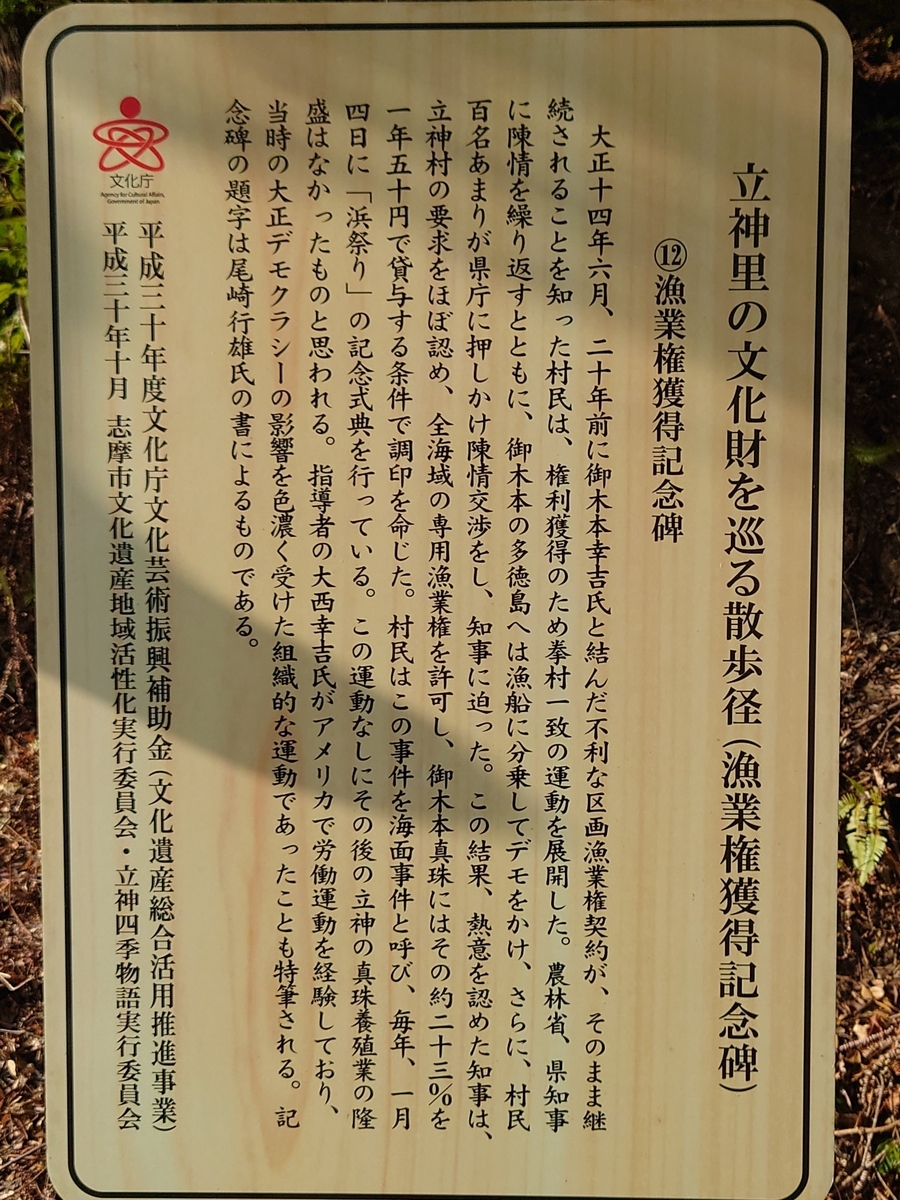 立神里の文化財を巡る散歩径(漁業権獲得記念碑)
⑫漁業権獲得記念碑
大正十四年六月、二十年前に御木本幸吉氏と結んだ不利な区画漁業権契約が、そのまま継
続されることを知った村民は、権利獲得のため挙村一致の運動を展開した。農林省、県知事
に陳情を繰り返すとともに、御木本の多徳島へは漁船に分乗してデモをかけ、さらに、村民
百名あまりが県庁に押しかけ陳情交渉をし、知事に迫った。この結果、熱意を認めた知事は、
立神村の要求をほぼ認め、全海域の専用漁業権を許可し、御木本真珠にはその約二十三%を
一年五十円で貸与する条件で調印を命じた。村民はこの事件を海面事件と呼び、毎年、一月
四日に「浜祭り」の記念式典を行っている。この運動なしにその後の立神の真珠養殖業の隆
盛はなかったものと思われる。指導者の大西幸吉氏がアメリカで労働運動を経験しており、
当時の大正デモクラシーの影響を色濃く受けた組織的な運動であったことも特筆される。記
念碑の題字は尾崎行雄氏の書によるものである。
文化庁
Agency for Cultural Affairs,
Government of Japan.
平成三十年度文化庁文化芸術振興補助金(文化遺産総合活用推進事業)
平成三十年十月 志摩市文化遺産地域活性化実行委員会・立神四季物語実行委員会